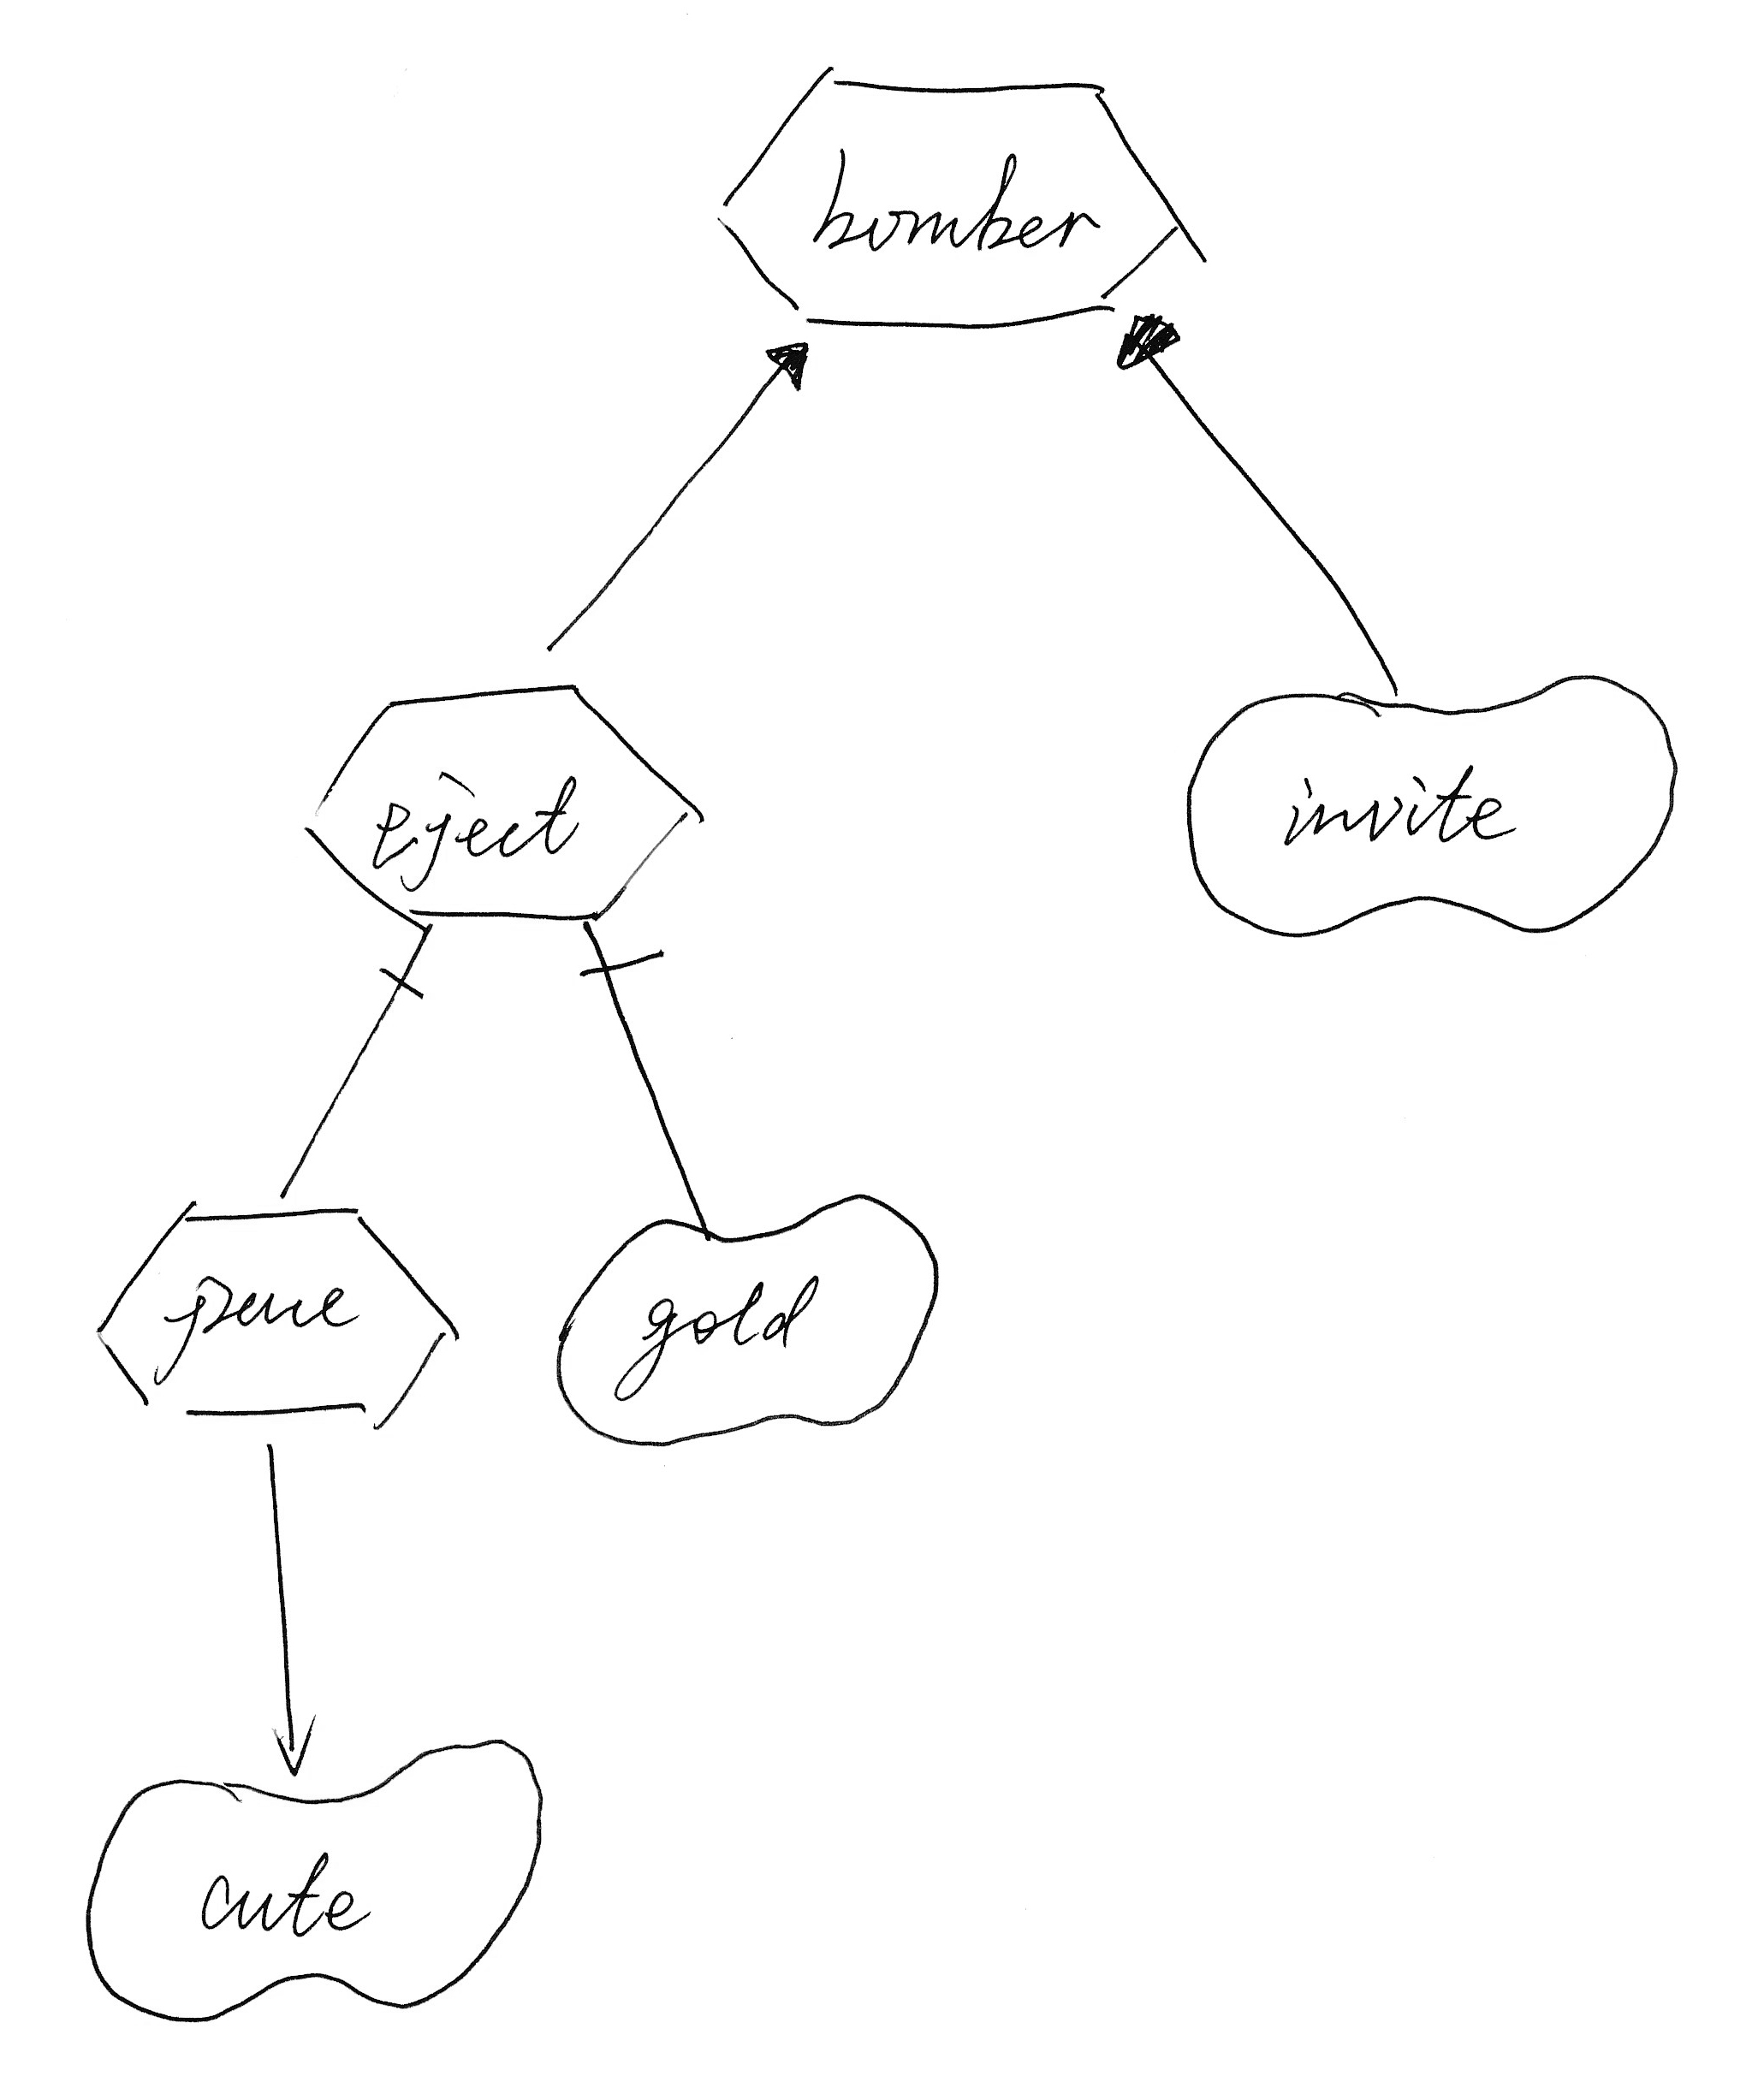 bomber
eject
invite
gold
cute